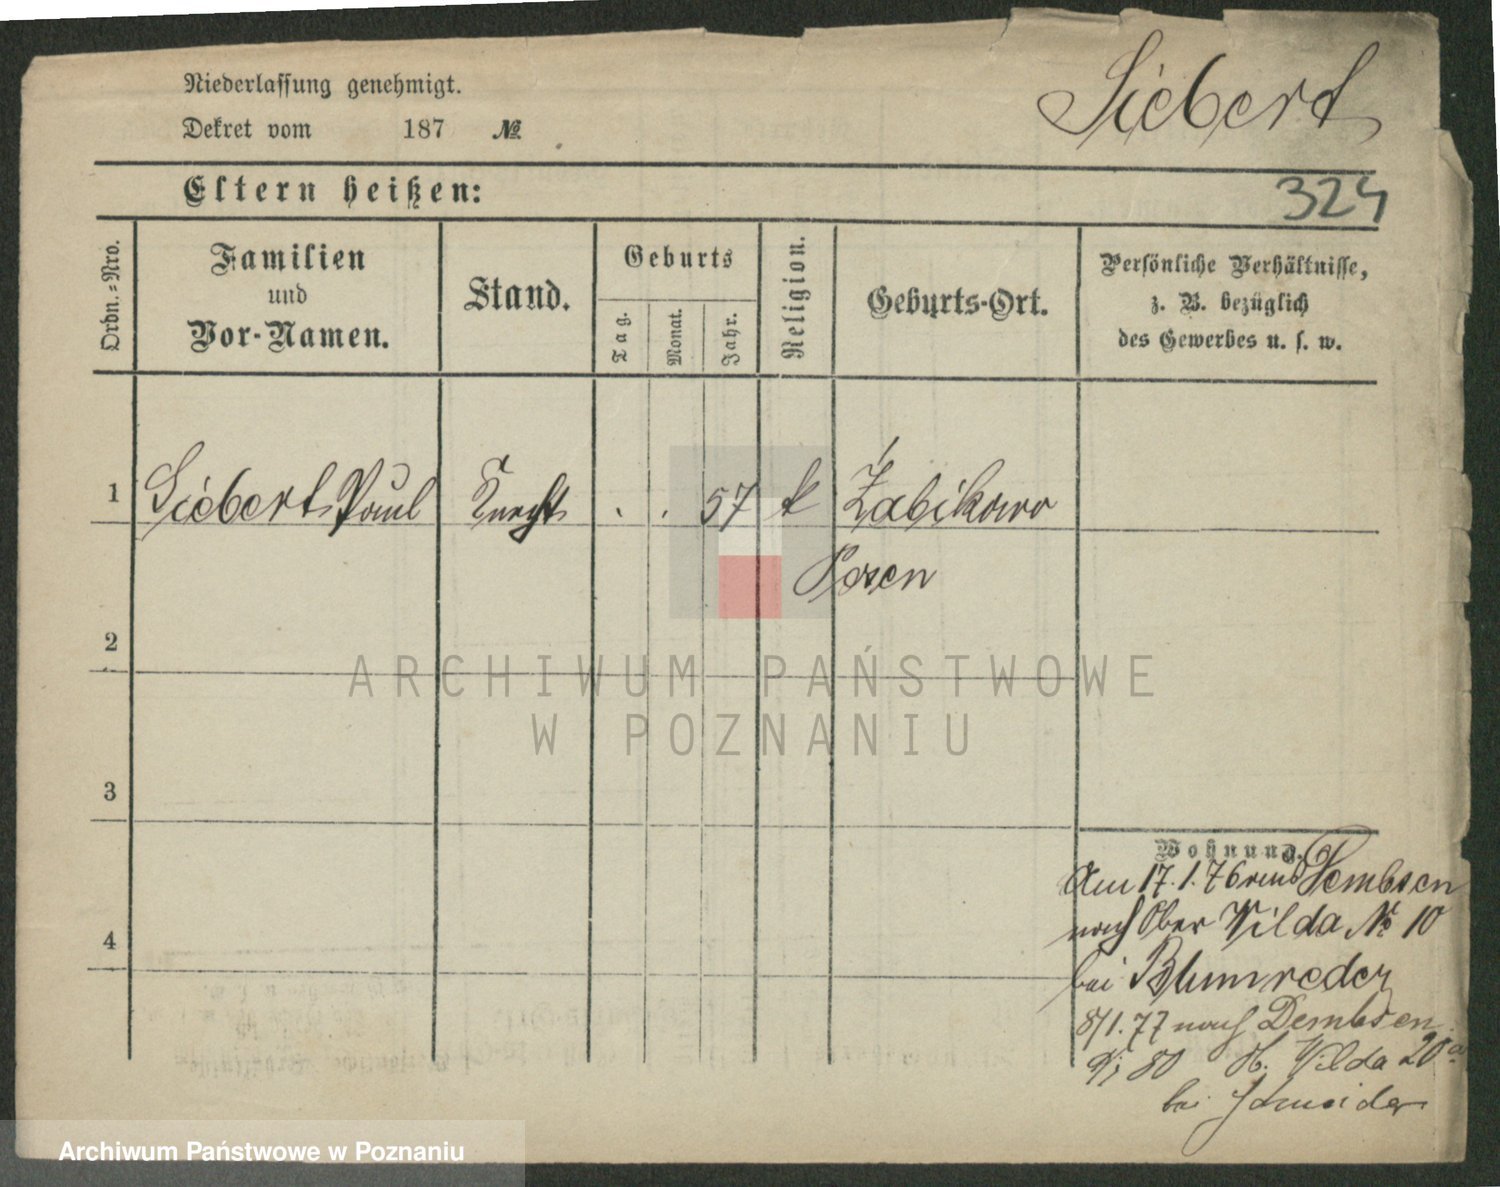 Niederlassung genehmigt.
Siebert
Dekret vom 187 №
Eltern heißen:
324
Ordn.=Nro.
Familien
und
Vor-Namen.
Stand.
Geburts
Tag.
Monat.
Jahr.
Religion.
Geburts-Ort.
Persönliche Verhältnisse,
z. B. bezüglich
des Gewerbes u. s. w.
1 Siebert Paul Knecht . . 57 k Żabikowo
Posen
2
ARCHIWUM PAŃSTWOWE
W POZNANIU
3
Wohnung.
Am 17.1.76 von Dembsen
nach Ober Wilda № 10
4
bei Blumreder
8/1.77 nach Dembsen
80 Wilda 20a
bei Schneider
Archiwum Państwowe w Poznaniu